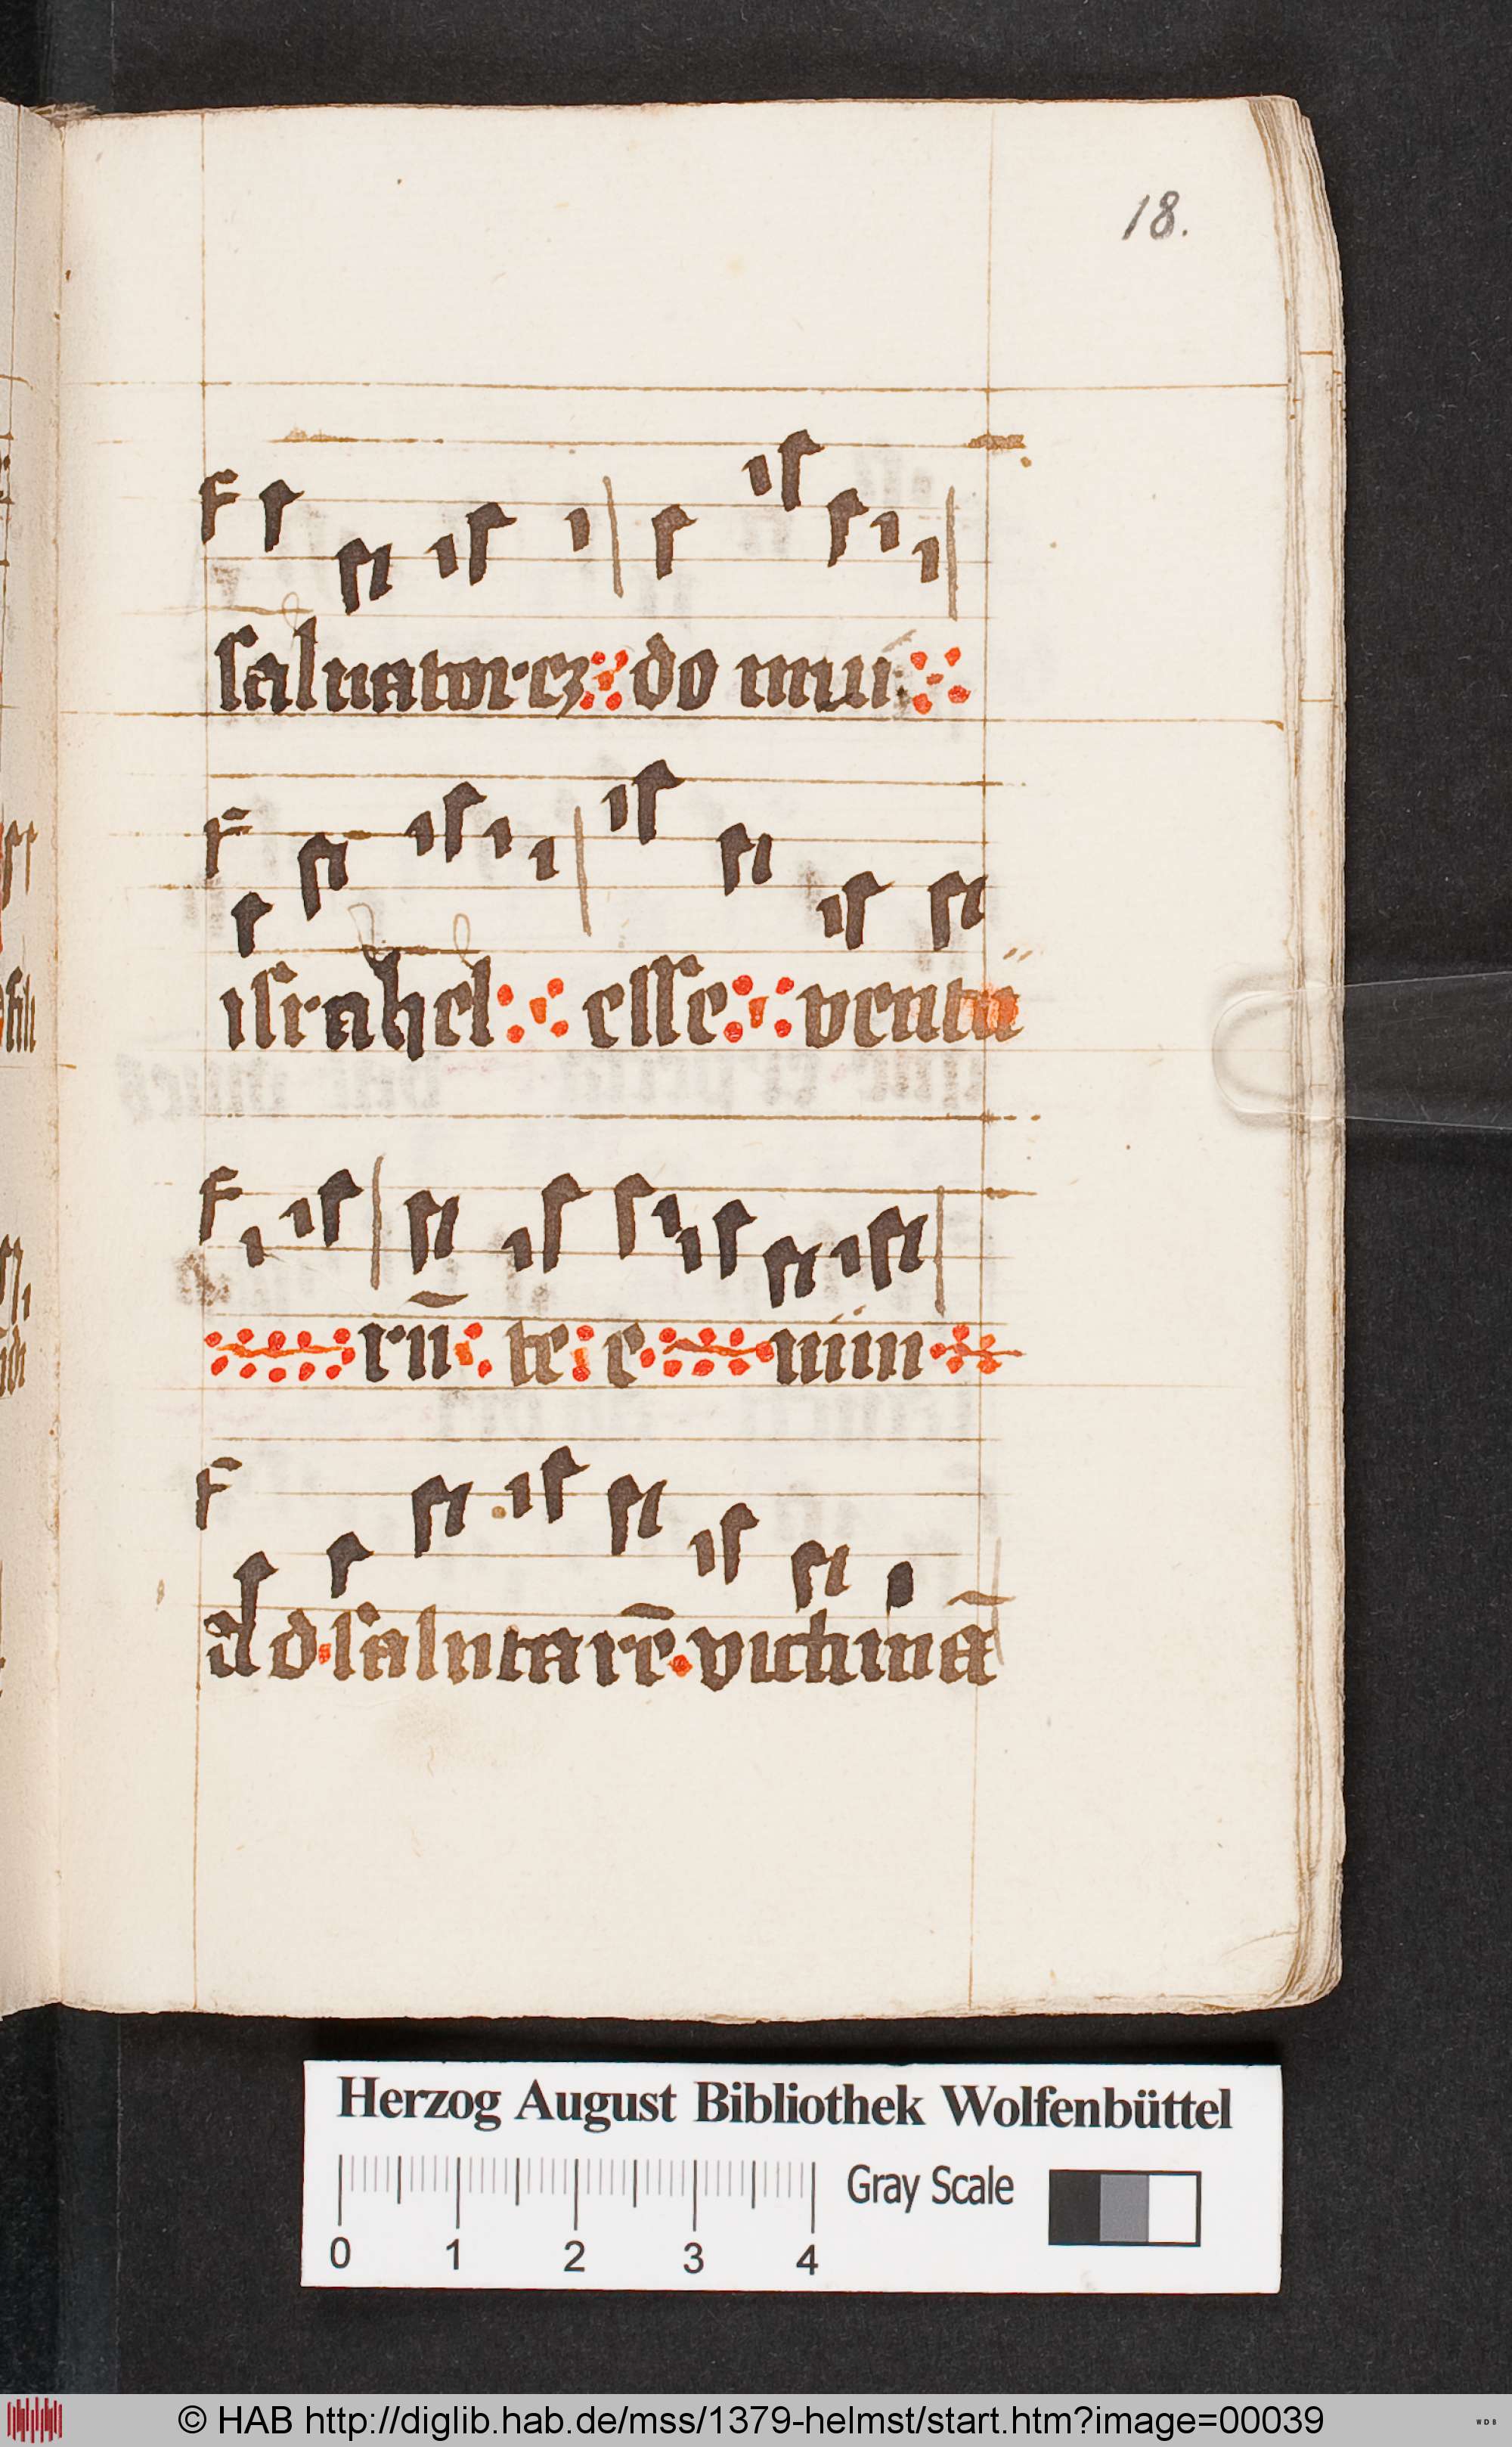 18.
saluatorez do mui
israhel esse ventu
rū te e nim
ad salutarē victimā
Herzog August Bibliothek Wolfenbüttel
0 1 2 3 4 Gray Scale
© HAB http://diglib.hab.de/mss/1379-helmst/start.htm?image=00039